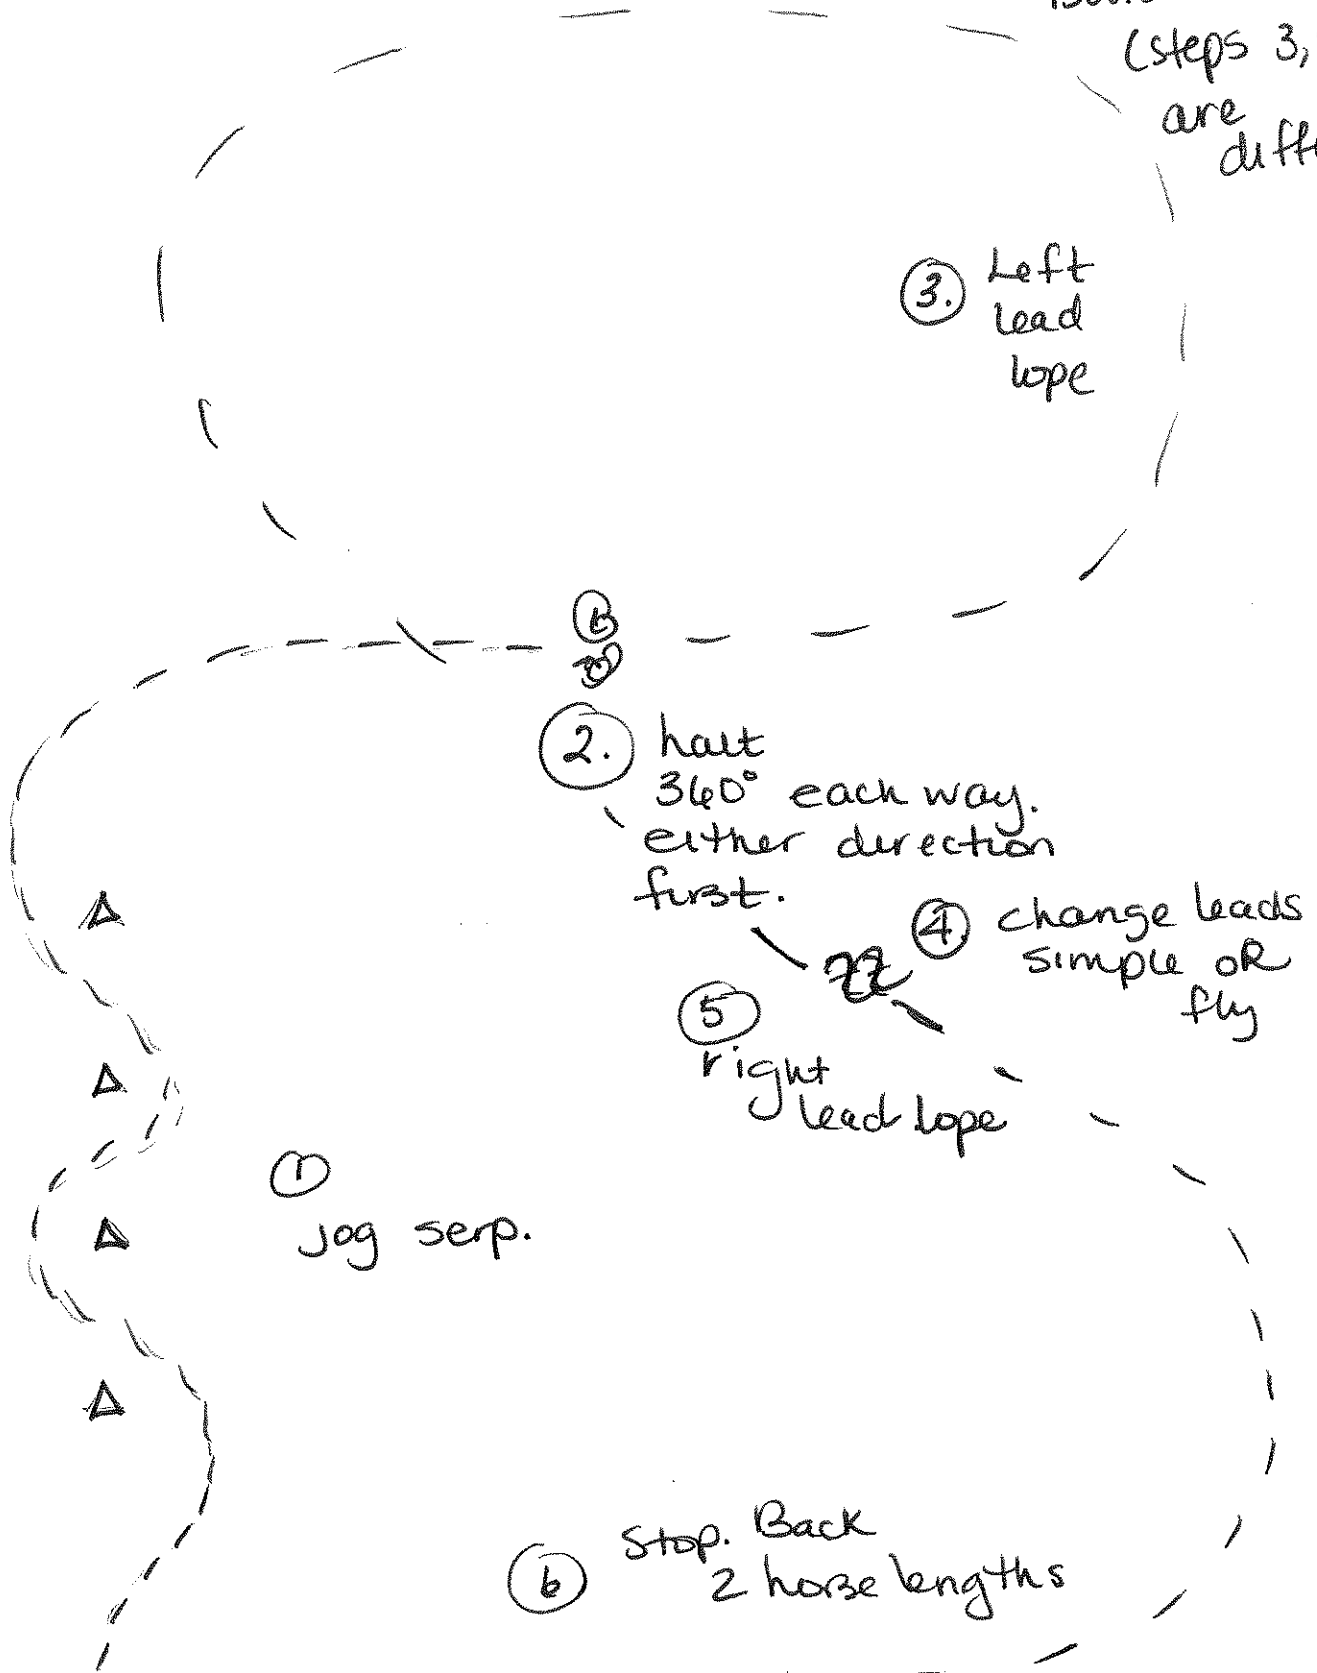 (steps 3,
are
3. Left
lead
lope
2. halt
360° each way.
either direction
first.
4. change leads
simple OR
fly
5
right
lead lope
1
Jog serp.
6 Stop. Back
2 horse lengths